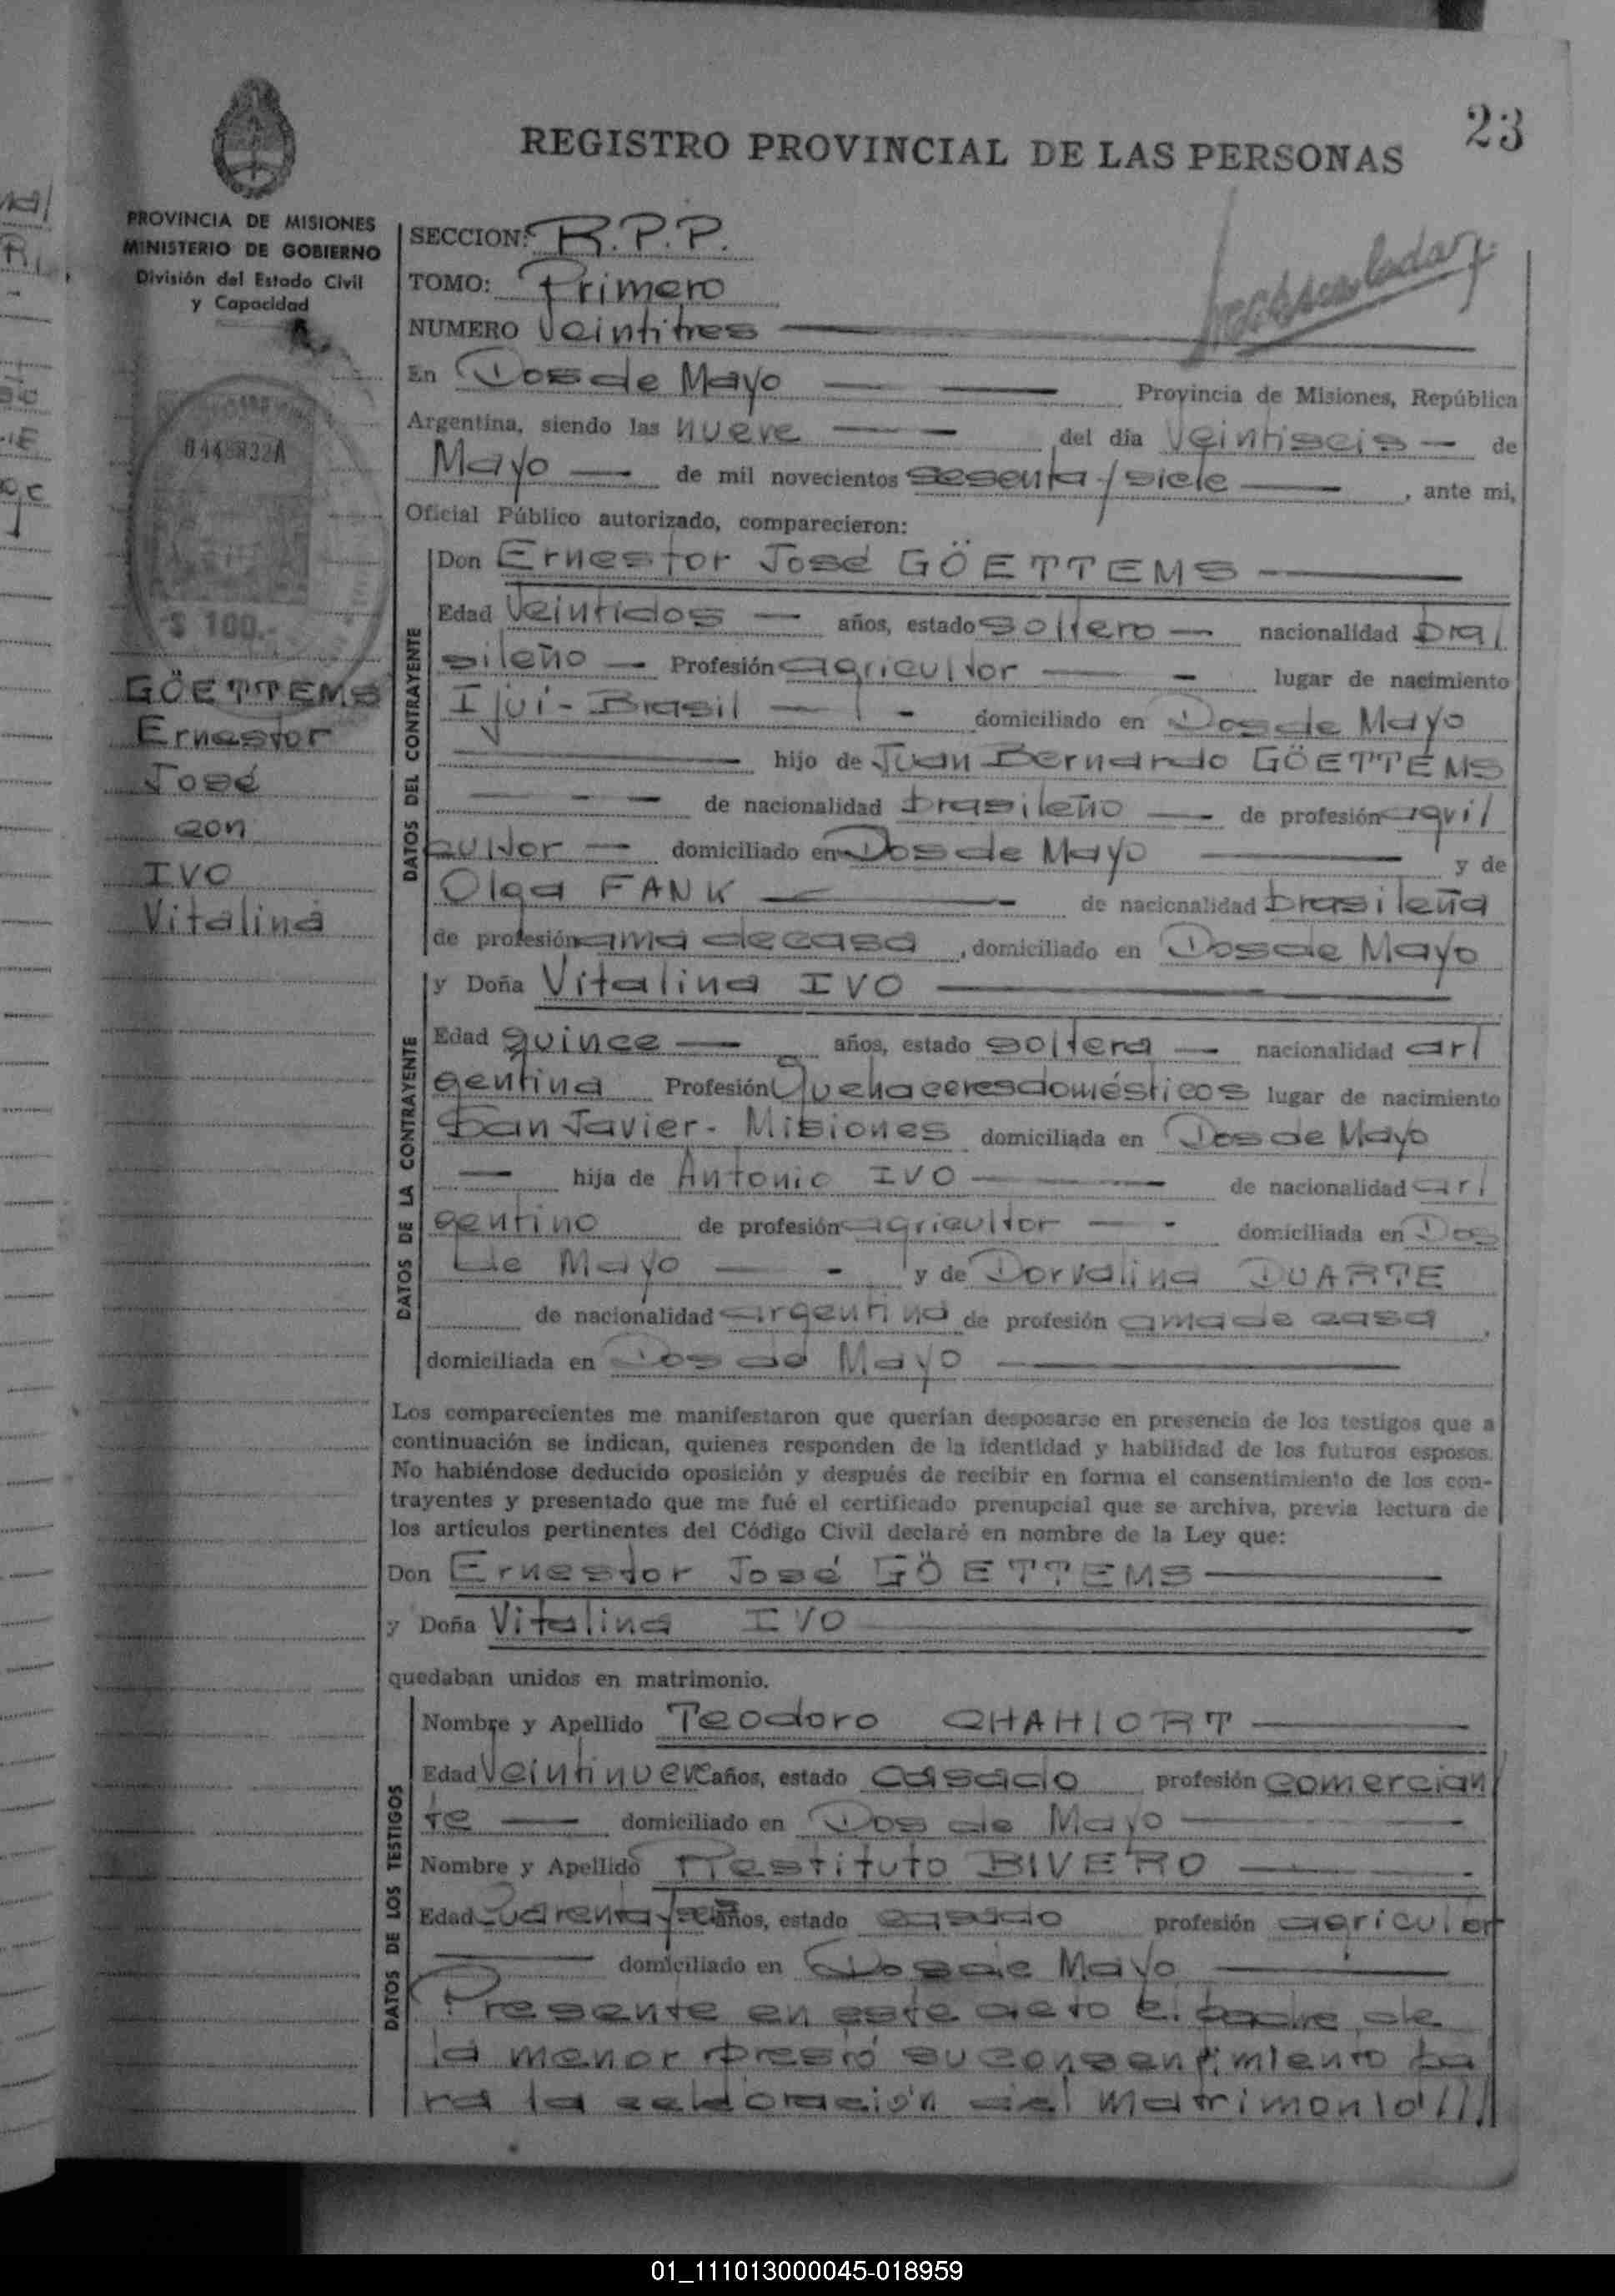 23
REGISTRO PROVINCIAL DE LAS PERSONAS
PROVINCIA DE MISIONES
MINISTERIO DE GOBIERNO
División del Estado Civil
y Capacidad
$ 100.-
GÖETTEMS
Ernestor
José
con
IVO
Vitalina
SECCION: R.P.P.
TOMO: Primero
NUMERO Veintitres
En Dos de Mayo Provincia de Misiones, República
Argentina, siendo las nueve del día veintiseis de
Mayo de mil novecientos sesenta y siete, ante mi,
Oficial Público autorizado, comparecieron:
DATOS DEL CONTRAYENTE
Don Ernestor José GÖETTEMS
Edad Veintidos años, estado soltero nacionalidad bra/
sileño Profesión agricultor lugar de nacimiento
Ijui - Brasil domiciliado en Dos de Mayo
hijo de Juan Bernardo GÖETTEMS
de nacionalidad brasileño de profesión agri/
cultor domiciliado en Dos de Mayo y de
Olga FANK de nacionalidad brasileña
de profesión ama de casa, domiciliado en Dos de Mayo
DATOS DE LA CONTRAYENTE
y Doña Vitalina IVO
Edad quince años, estado soltera nacionalidad ar/
gentina Profesión Quehaceres domésticos lugar de nacimiento
San Javier - Misiones domiciliada en Dos de Mayo
hija de Antonio IVO de nacionalidad ar/
gentino de profesión agricultor domiciliada en Dos
de Mayo y de Dorvalina DUARTE
de nacionalidad argentina de profesión ama de casa,
domiciliada en Dos de Mayo
Los comparecientes me manifestaron que querían desposarse en presencia de los testigos que a
continuación se indican, quienes responden de la identidad y habilidad de los futuros esposos.
No habiéndose deducido oposición y después de recibir en forma el consentimiento de los con-
trayentes y presentado que me fué el certificado prenupcial que se archiva, previa lectura de
los artículos pertinentes del Código Civil declaré en nombre de la Ley que:
Don Ernestor José GÖETTEMS
y Doña Vitalina IVO
quedaban unidos en matrimonio.
DATOS DE LOS TESTIGOS
Nombre y Apellido Teodoro CHAHIORT
Edad Veintinueve años, estado casado profesión comercian/
te domiciliado en Dos de Mayo
Nombre y Apellido Restituto RIVERO
Edad Cuarenta y años, estado casado profesión agricultor
domiciliado en Dos de Mayo
Presente en este acto el padre de
la menor prestó su consentimiento pa
ra la celebración del matrimonio////
01_111013000045-018959